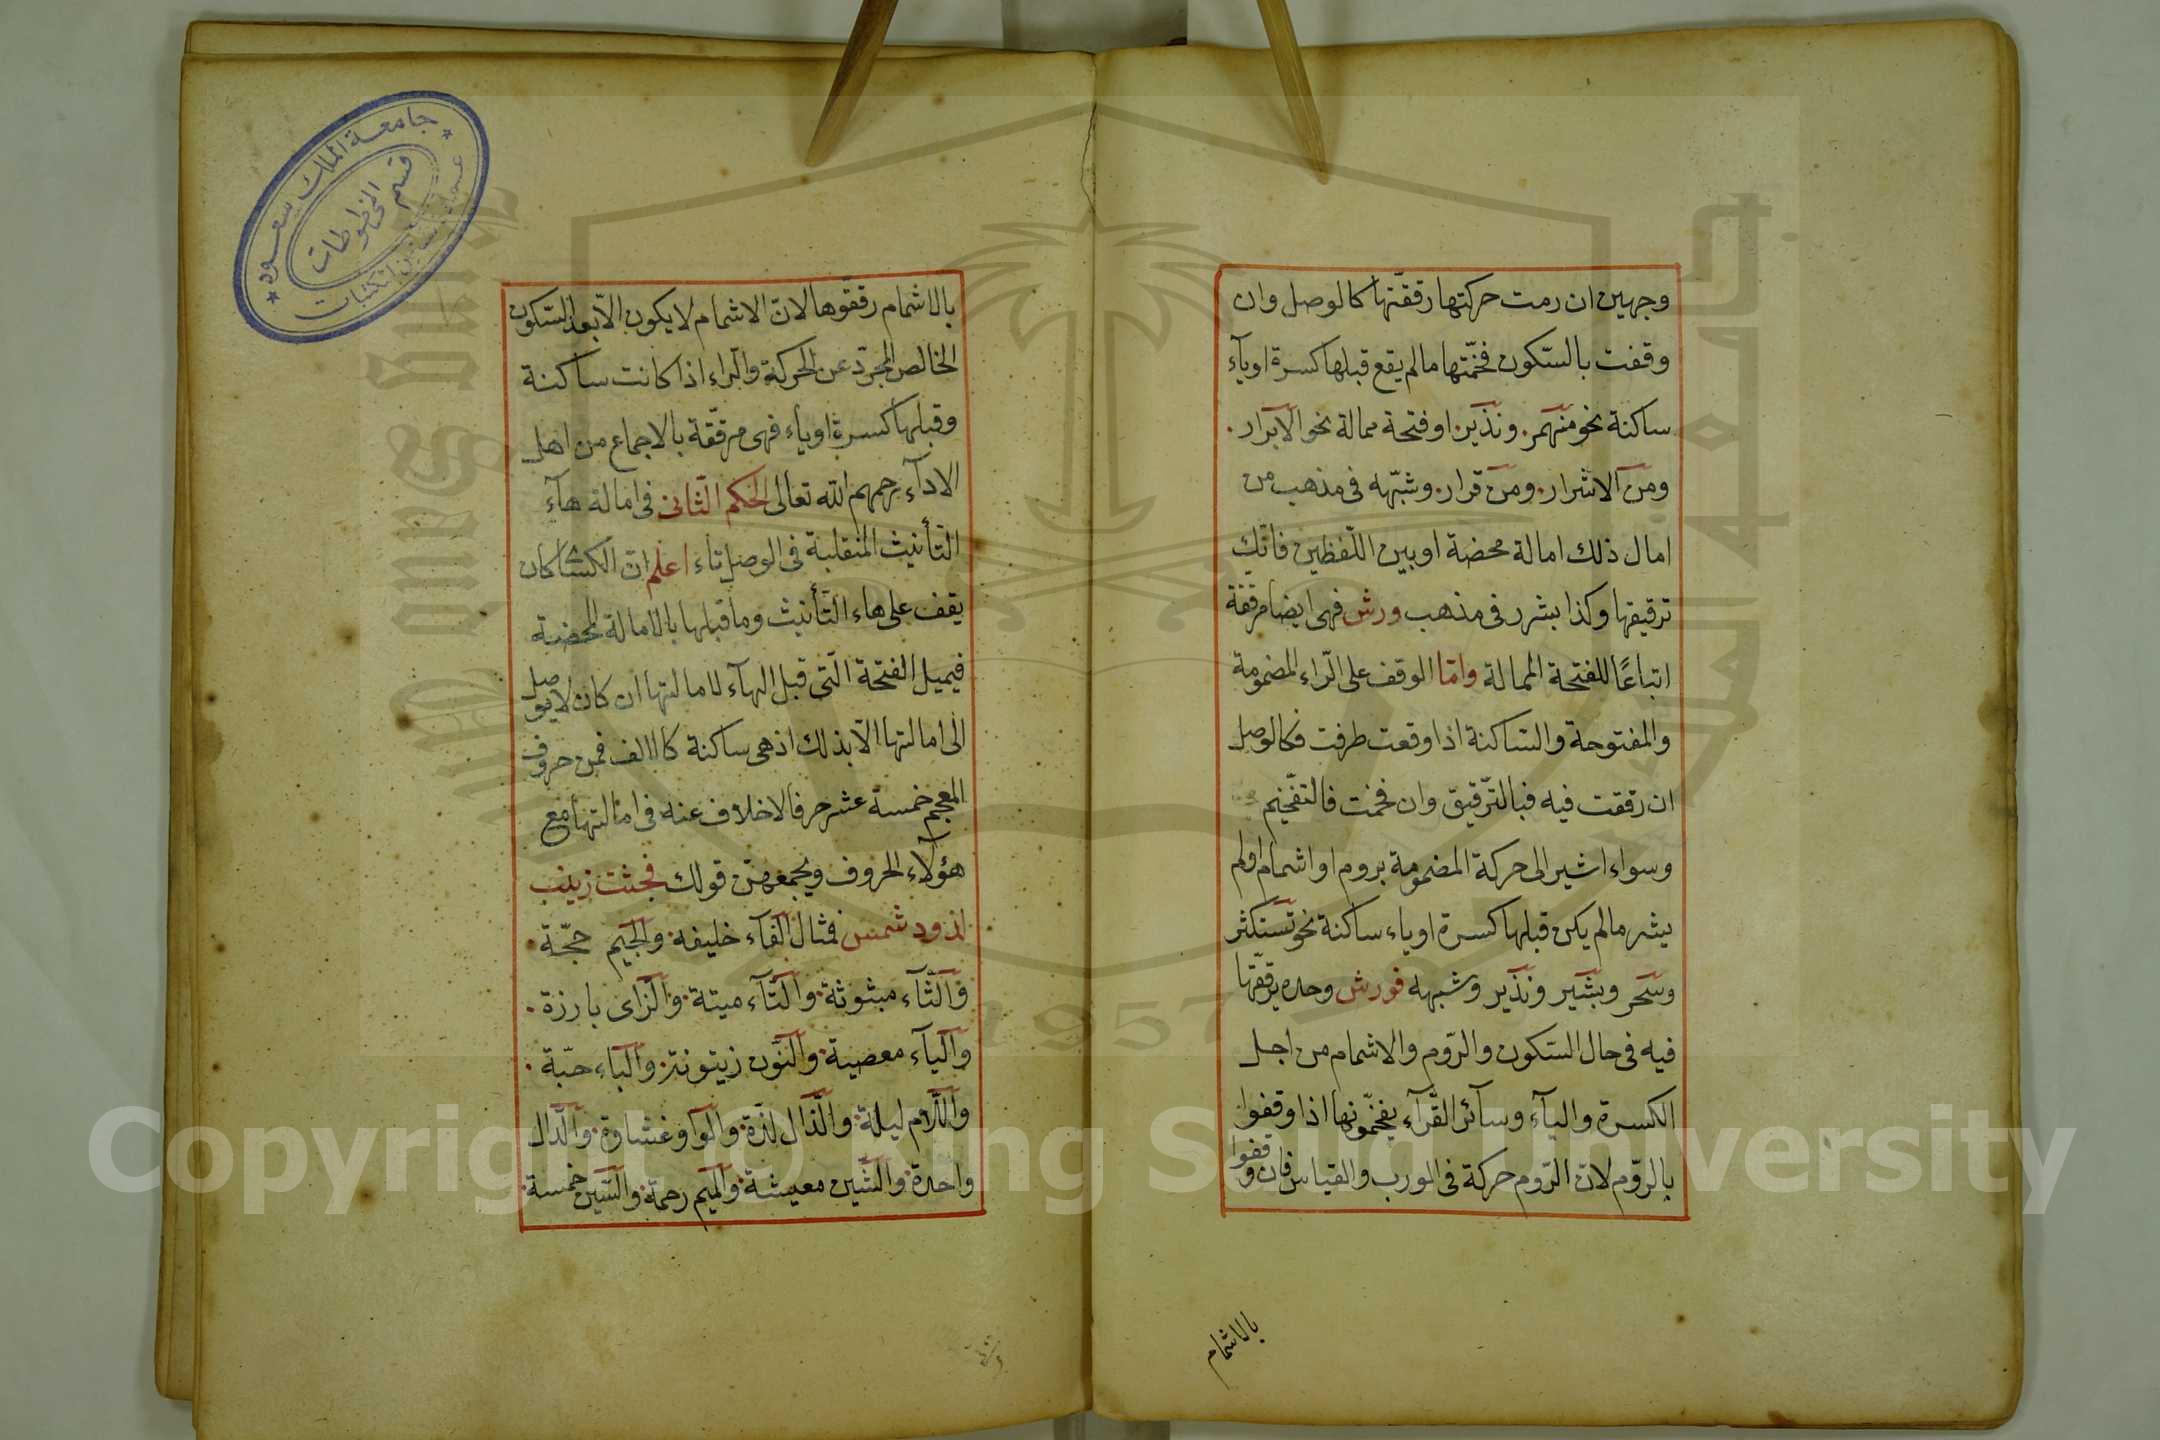 وجهين ان رمت حركتها رققتها كالوصل وان
وقفت بالسّكون فخّمتها مالم يقع قبلها كسرة اوياء
ساكنة نحو منهمر. ونذير. او فتحة ممالة نحو الابرار.
ومن الاشرار. ومن قرار. وشبّهه فى مذهب من
امال ذلك امالة محضة او بين اللّفظين فانّك
ترقيقها وكذا بشرر فى مذهب ورش فهى ايضا مرققة
اتباعًا للفتحة الممالة وامّا الوقف على الرّاء المضمومة
والمفتوحة والسّاكنة اذا وقعت طرفت فكالوصل
ان رققت فيه فبالتّرقيق وان فخمت فالتفخيم
وسواء اشير الى حركة المضمومة بروم او اشمام اولم
يشر مالم يكن قبلها كسرة اوياء ساكنة نحو تستكثر
وسحر وبشير ونذير وشبهه فورش وحده يرققّها
فيه فى حال السّكون والرّوم والاشمام من اجل
الكسرة والياء وسآئر القرّآء يفخّمونها اذا وقفوا
بالرّوم لانّ الرّوم حركة فى الورب والقياس فان وقفوا
بالاشمام
بالاشمام رققوها لانّ الاشمام لا يكون الاّ بعد السّكون
الخالص المجرّد عن الحركة والرّاء اذا كانت ساكنة
وقبلها كسرة اوياء فهى مرقّقة بالاجماع من اهل
الادآء رحمهم الله تعالى الحكم الثّانى فى امالة هآء
التأنيث المنقلبة فى الوصل تاء اعلم انّ الكسائى كان
يقف على هاء التّأنيث وما قبلها بالامالة المحضة
فيميل الفتحة الّتى قبل الهآء لامالتها ان كان لا يوصل
الى امالتها الاّ بذلك اذ هى ساكنة كالالف فمن حروف
المعجم خمسة عشر حرفا لاخلاف عنه فى امالتها مع
هؤلآء الحروف ويجمعهنّ قولك فجثت زينب
لذود شمس فمثال الفآء خليفه. والجيم حجّة.
والثّاء مبثوثة. والتّآء ميتة. والزّاى بارزة.
والياء معصية. والنّون زيتونة. والباء حبّة.
واللّام ليلة. والذّال لذّة. والواو غشاوة. والدّال
واحدة. والشّين معيشة. والميم رحمة. والسّين خمسة.
جامعة الملك سعود
قسم المخطوطات
Copyright © King Saud University
1957